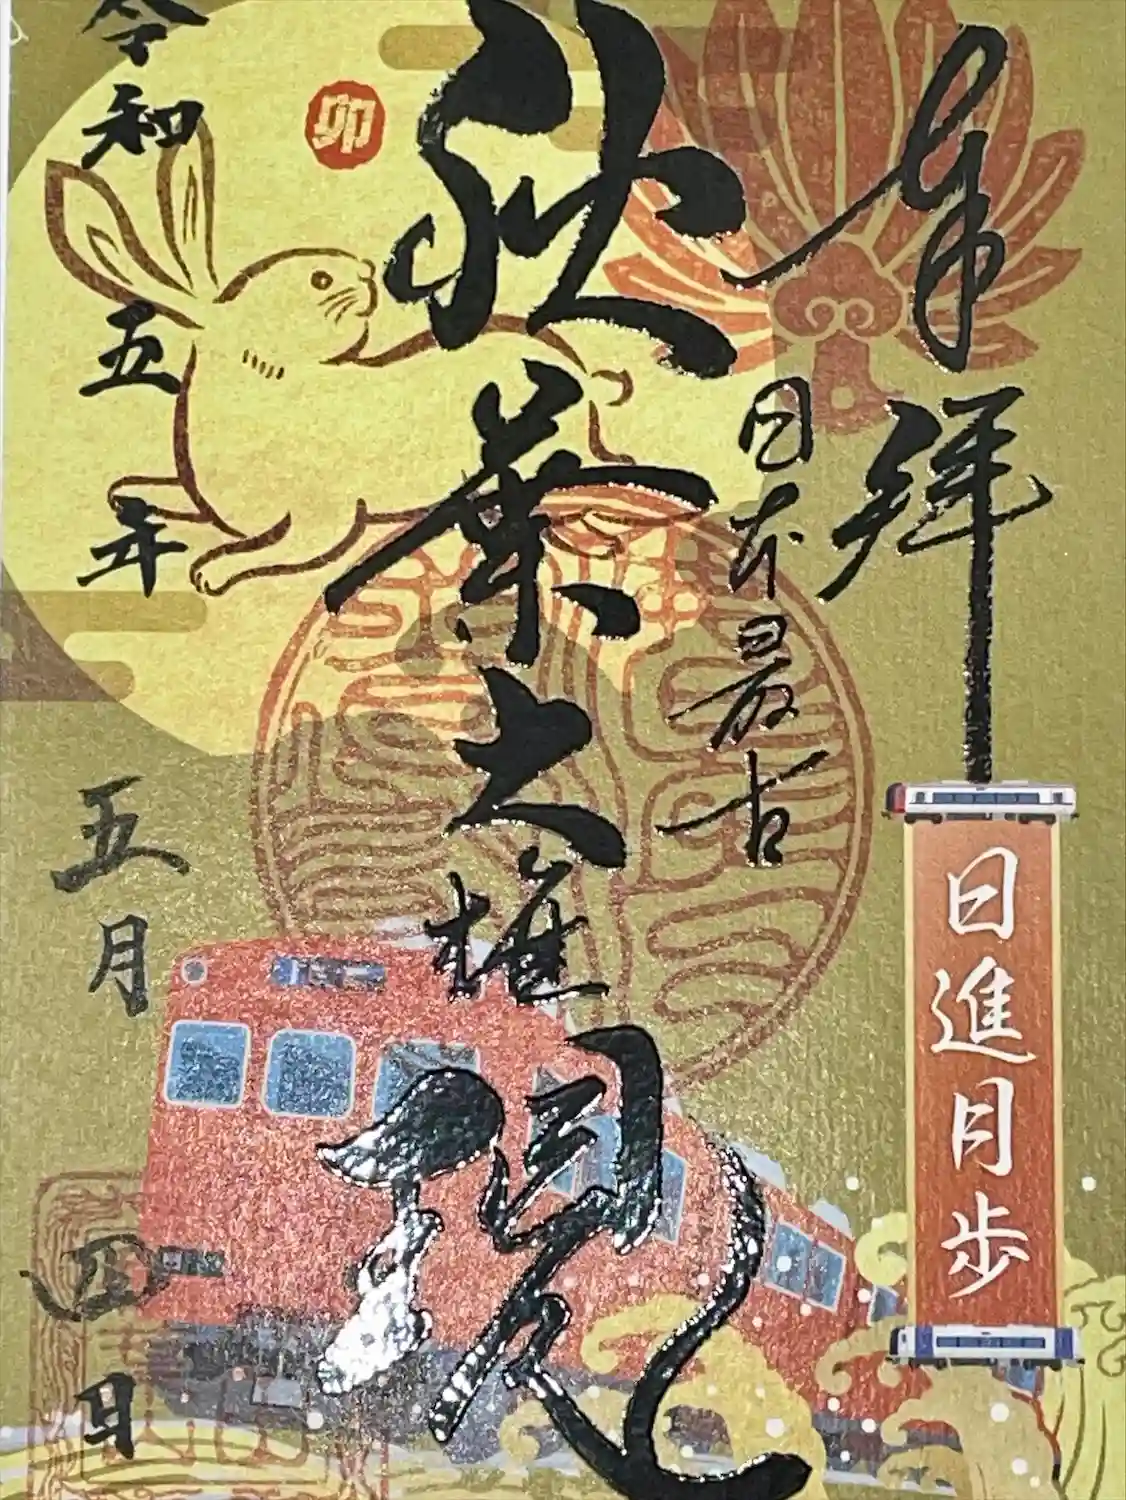 奉拝
日進月歩
日本最古
秋葉大権現
卯
令和五年五月四日